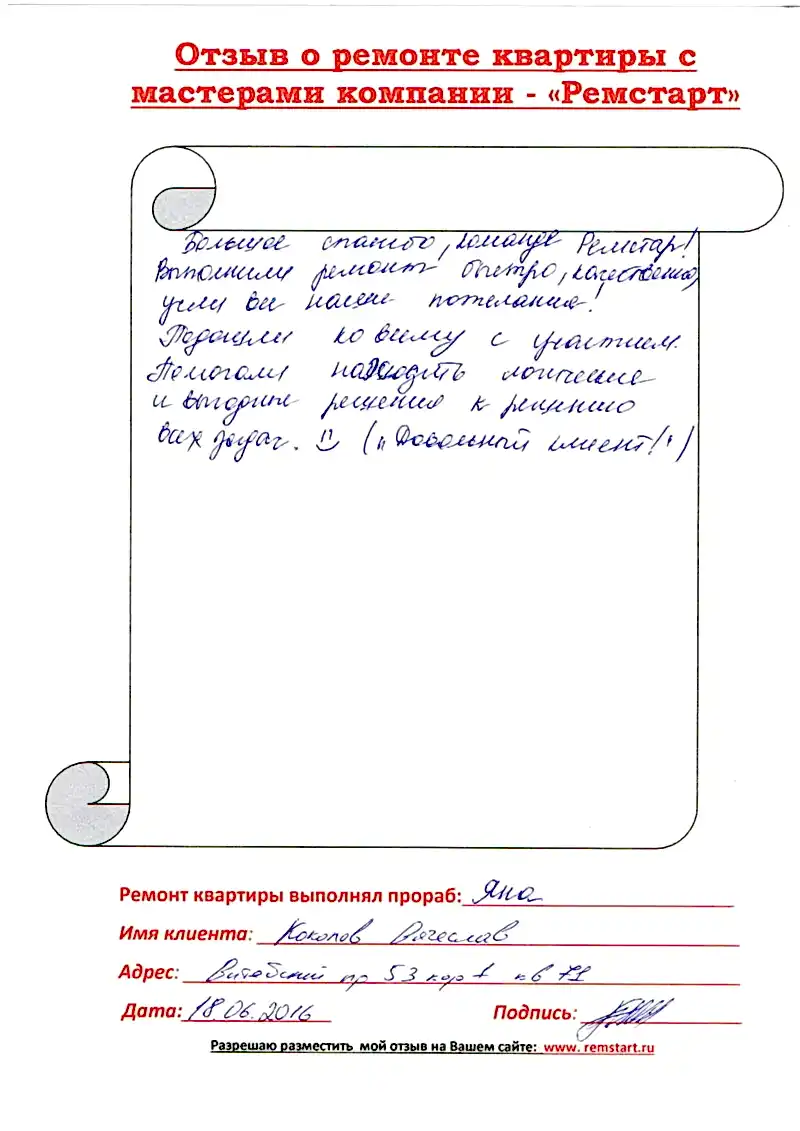 Отзыв о ремонте квартиры с
мастерами компании - «Ремстарт»
Большое спасибо, команде Ремстар!
Выполнили ремонт быстро, качественно,
учли все наши пожелания!
Подошли ко всему с участием.
Помогали находить логические
и выгодные решения к решению
всех задач. (,,Довольный клиент!")
Ремонт квартиры выполнял прораб: Яна
Имя клиента: Вячеслав
Адрес: Витебский пр 53 кор 1 кв 71
Дата: 18.06.2016 Подпись:
Разрешаю разместить мой отзыв на Вашем сайте: www. remstart.ru